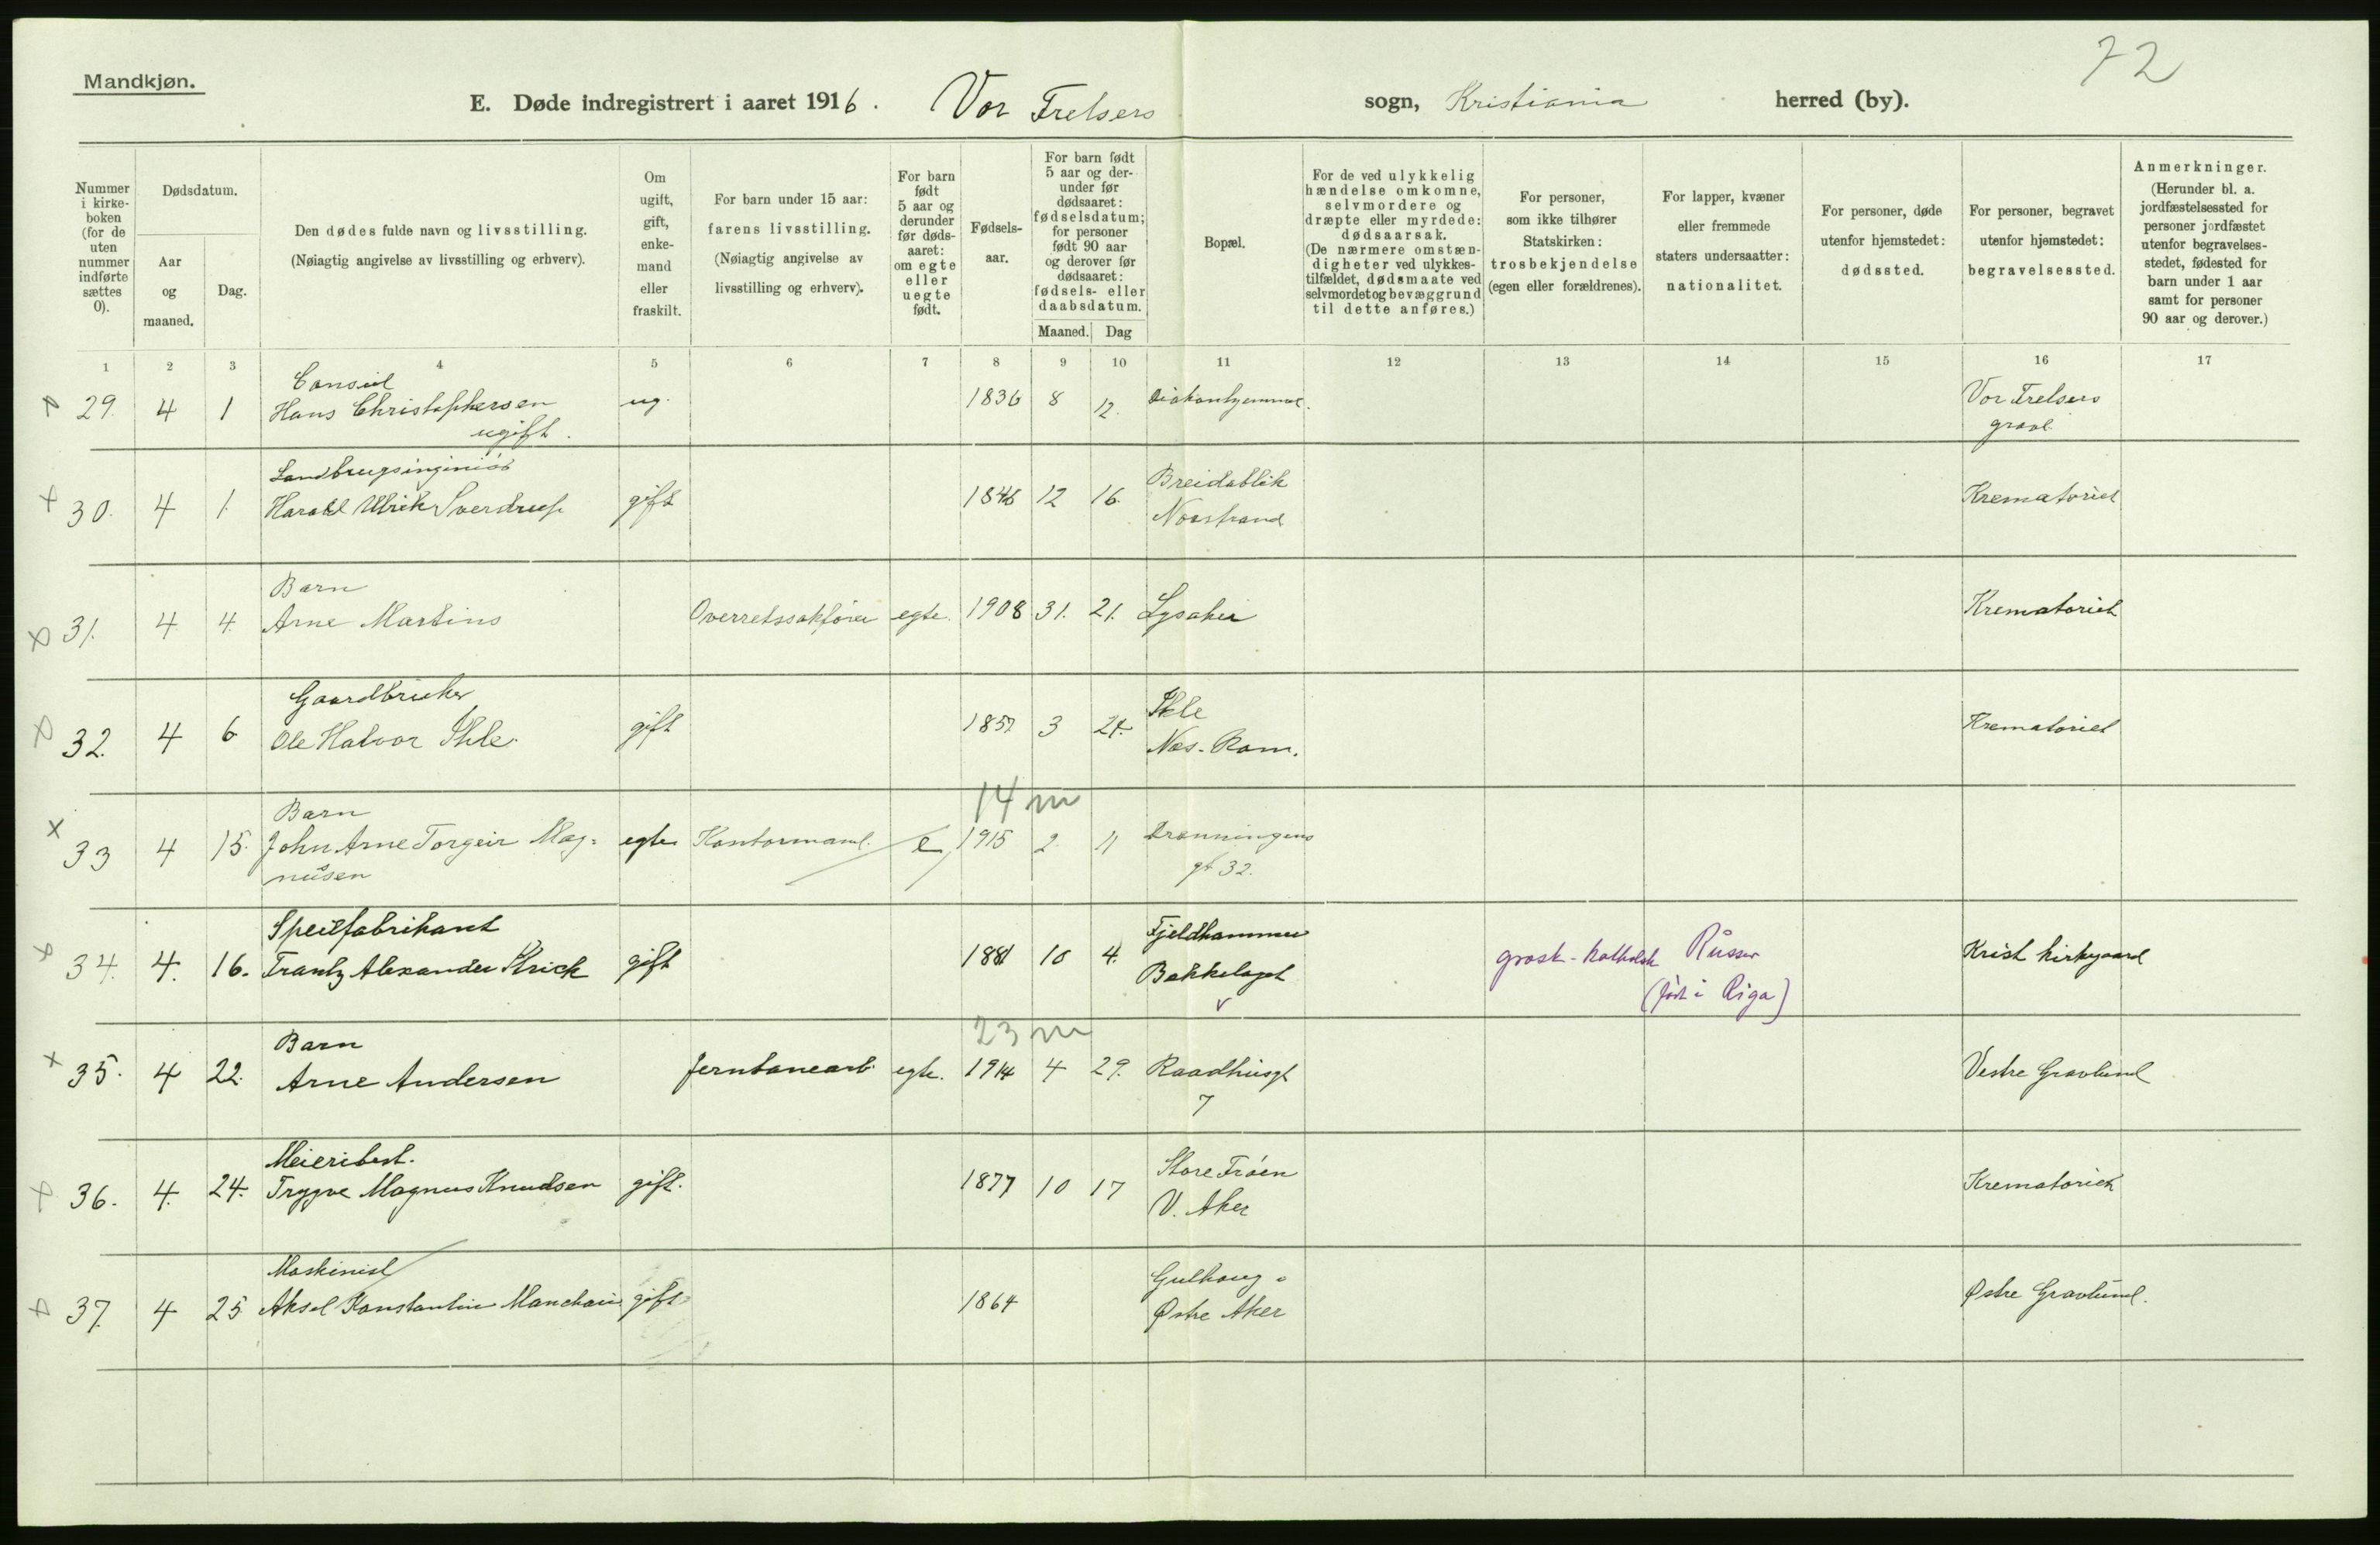 72
Mandkjøn.
E. Døde indregistrert i aaret 1916. Vor Frelsers sogn, Kristiania herred (by).
Nummer i kirke-boken (for de uten nummer indførte sættes 0).
Dødsdatum.
Aar og maaned.
Dag.
Den dødes fulde navn og livsstilling.
(Nøiagtig angivelse av livsstilling og erhverv).
Om ugift, gift, enke-mand eller fraskilt.
For barn under 15 aar: farens livsstilling. (Nøiagtig angivelse av livsstilling og erhverv).
For barn født 5 aar og derunder før døds-aaret: om egte eller uegte født.
Fødsels-aar.
For barn født 5 aar og der-under før dødsaaret: fødselsdatum; for personer født 90 aar og derover før dødsaaret: fødsels- eller daabsdatum.
Maaned. Dag
Bopæl.
For de ved ulykkelig hændelse omkomne, selvmordere og dræpte eller myrdede: dødsaarsak. (De nærmere omstæn-digheter ved ulykkes-tilfældet, dødsmaate ved selvmordet og bevæggrund til dette anføres.)
For personer, som ikke tilhører Statskirken: trosbekjendelse (egen eller forældrenes).
For lapper, kvæner eller fremmede staters undersaatter: nationalitet.
For personer, døde utenfor hjemstedet: dødssted.
For personer, begravet utenfor hjemstedet: begravelsessted.
Anmerkninger. (Herunder bl. a. jordfæstelsessted for personer jordfæstet utenfor begravelses-stedet, fødested for barn under 1 aar samt for personer 90 aar og derover.)
1 2 3 4 5 6 7 8 9 10 11 12 13 14 15 16 17
Consul
29. 4 1 Hans Christophersen ug. 1836 8 12. Diakonhjemmet. Vor Frelsers
ugift. gravl.
Landbrugsingeniør Breidablik
30. 4 1. Harald Ulrik Sverdrup gift 1846 12 16. Krematoriet
Norstrand
Barn
31. 4 4. Arne Martins Overretssakfører egte. 1908 31. 21. Lysaker Krematoriet
Gaardbruker Ihle
32. 4 6 Ole Halvor Ihle. gift 1857 3 24. Krematoriet
Nes. Rom.
14 m
Barn
33 4 15. John Arne Torgeir Mag- egte Kontormand. e 1915 2. 11 Dronningens
nusen gt 32.
Speilfabrikant Fjeldhammer
34. 4. 16. Frantz Alexander Strick gift 1881 10 4. græsk-katholsk Russer Krist kirkegaard
Bækkelaget (født i Riga)
23 m
Barn
35. 4 22. Arne Andersen Jernbanearb. egte. 1914 4 29. Raadhusgt Vestre Gravlund
7
Meieribest. Store Frøen
36. 4. 24. Trygve Magnus Knudsen gift. 1877 10 17 Krematoriet
V. Aker
Maskinist Gulhaug
37. 4 25 Aksel Konstantin gift 1864 Østre Gravlund.
Østre Aker